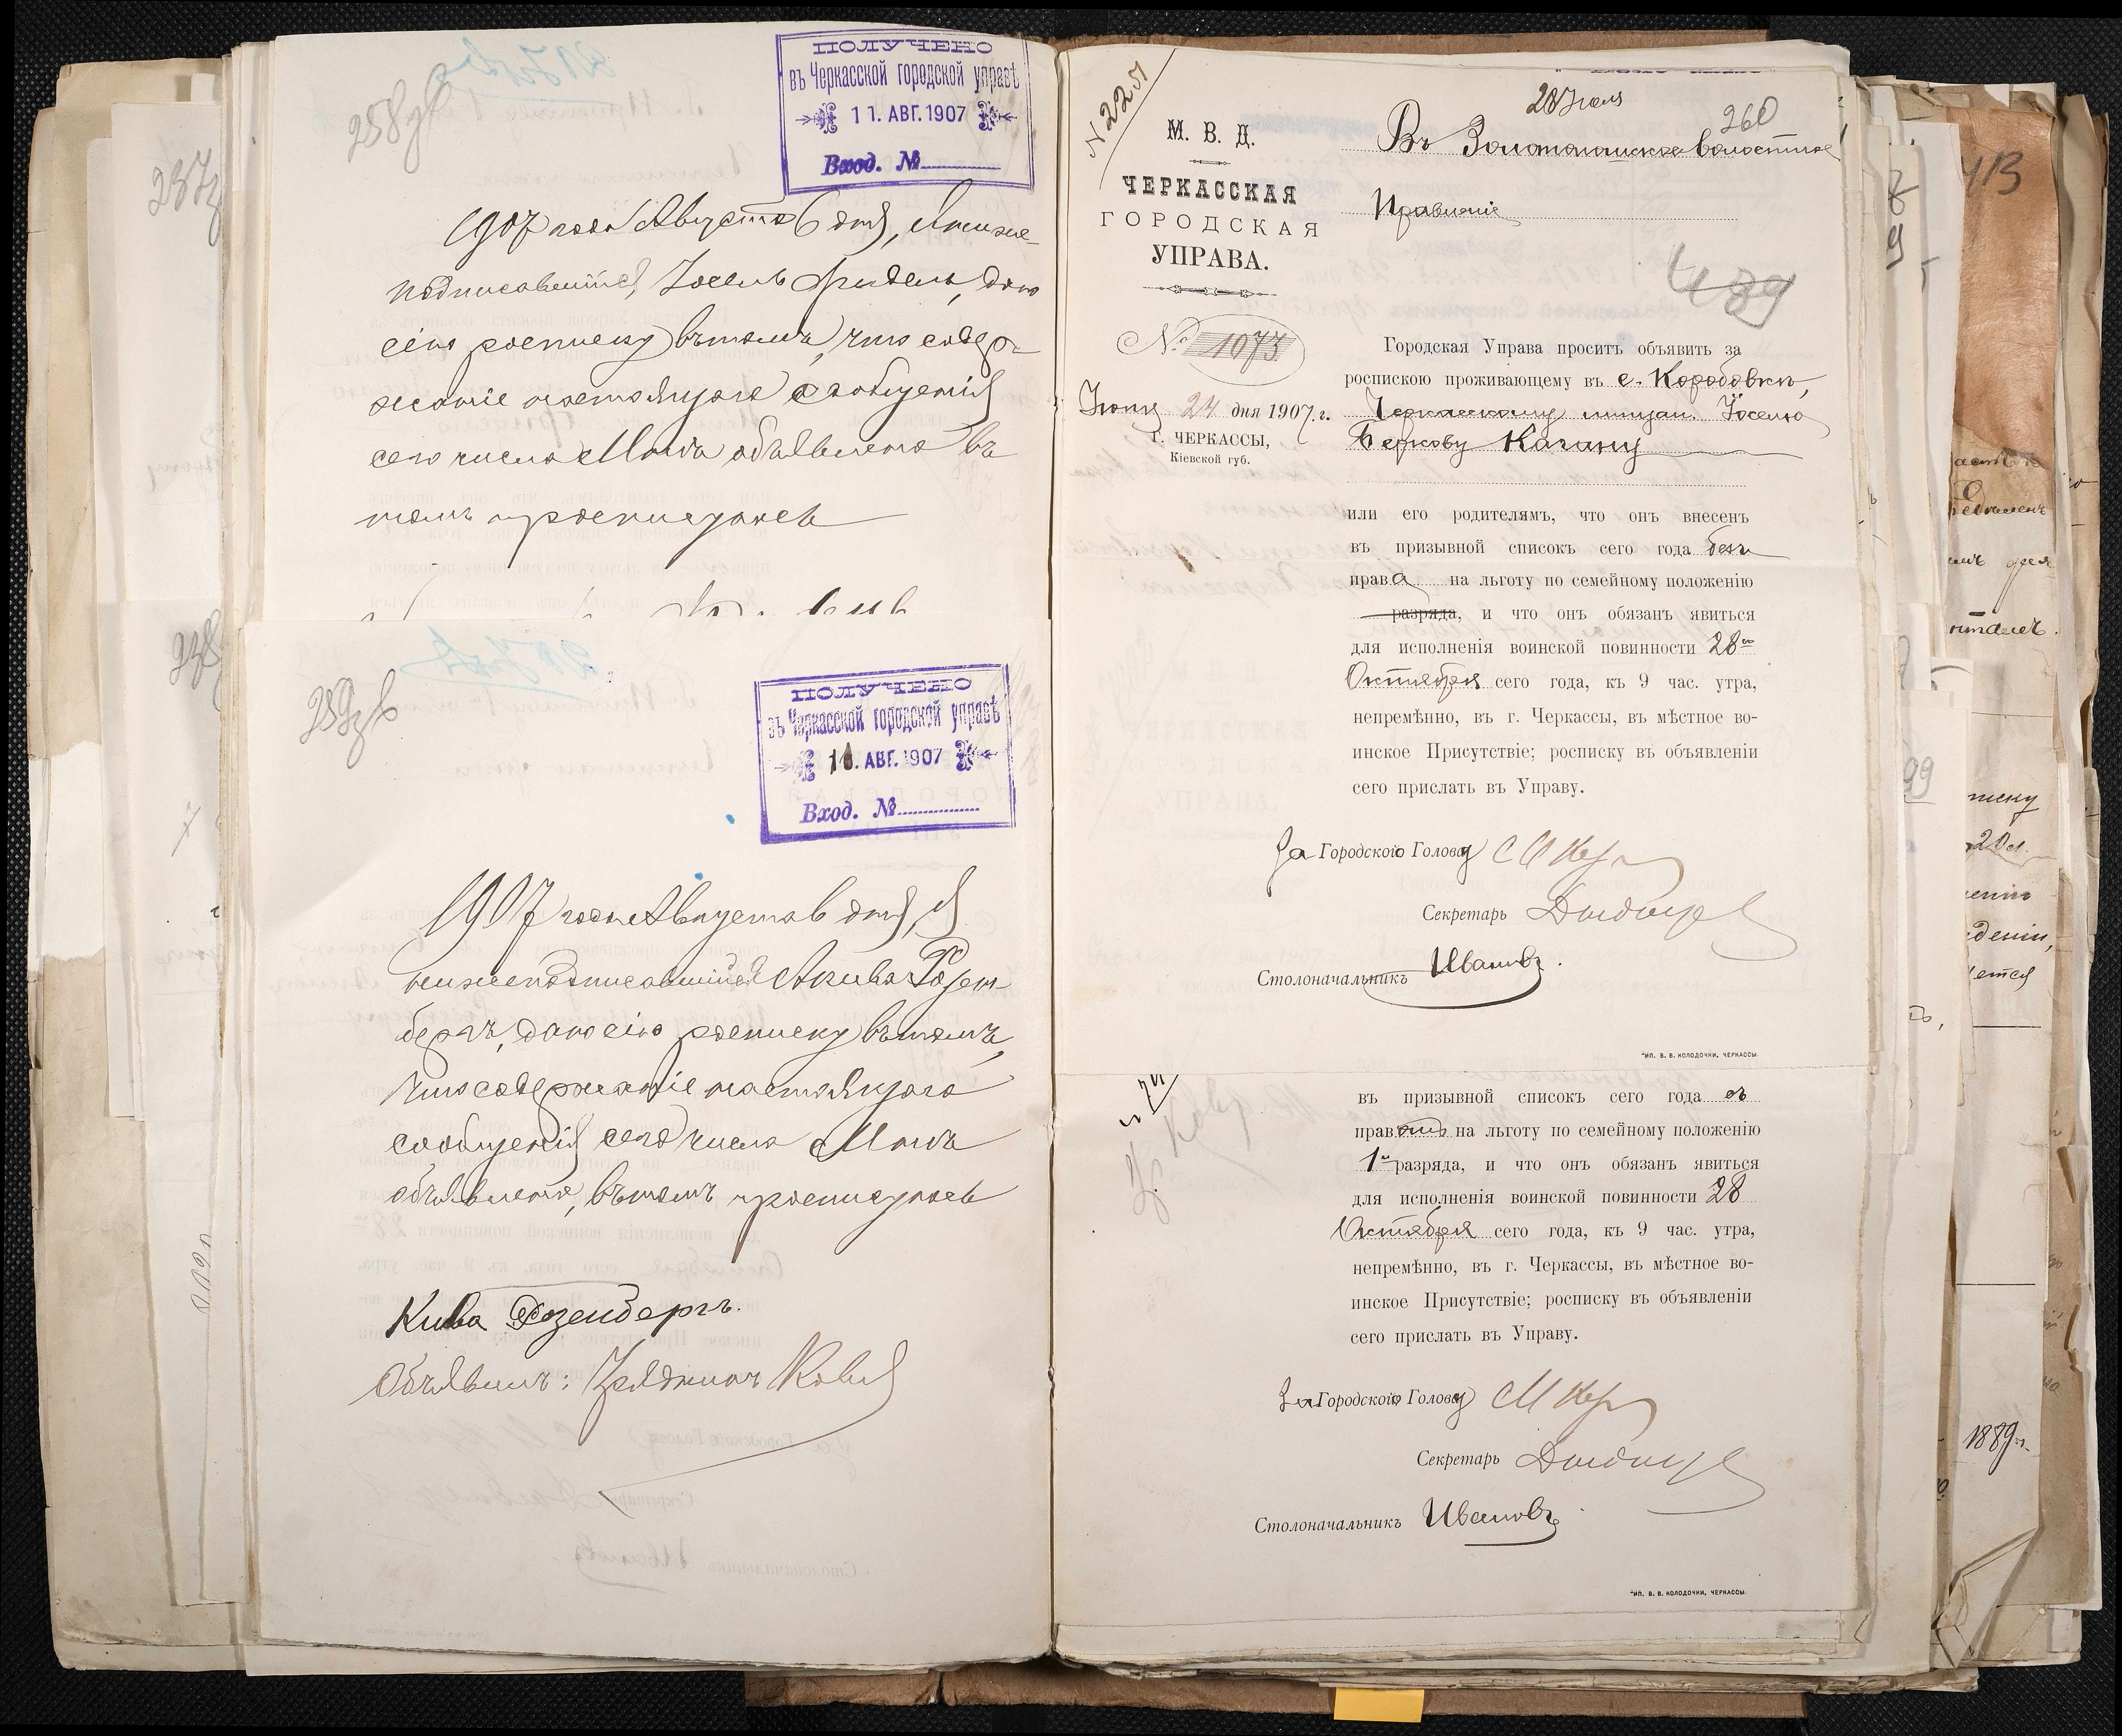 258 об
ПОЛУЧЕНО
въ Черкасской городской управѣ
11. АВГ. 1907
Вход. №
1907 года Августа 6 дня, я ниже-
подписавшійся, Іосель Фридель, даю
сію росписку въ томъ, что содер-
жаніе настоящаго сообщенія
сего числа Мнѣ объявлено въ
томъ и росписуюсь
259 об
ПОЛУЧЕНО
въ Черкасской городской управѣ
11. АВГ. 1907
Вход. №
1907 года Августа 6 дня, я
нижеподписавшійся Акива Розен-
бергъ, даю сію росписку въ томъ,
что содержаніе настоящаго
сообщенія сего числа Мнѣ
объявлено, въ томъ и росписуюсь
Кива Розенбергъ.
Объявилъ: Урядникъ
N 2251
28 Іюля
260
М. В. Д.
ЧЕРКАССКАЯ
ГОРОДСКАЯ
УПРАВА.
№ 1073
Іюня 24 дня 1907 г.
Г. ЧЕРКАССЫ,
Кіевской губ.
Въ Золотоношское волостное
Правленіе
489
Городская Управа проситъ объявить за
роспискою проживающему въ с. Коробовкѣ,
Черкасскому мѣщан. Іоселю
Беркову Кагану
или его родителямъ, что онъ внесенъ
въ призывной списокъ сего года безъ
права на льготу по семейному положенію
разряда, и что онъ обязанъ явиться
для исполненія воинской повинности 28го
Октября сего года, къ 9 час. утра,
непремѣнно, въ г. Черкассы, въ мѣстное во-
инское Присутствіе; росписку въ объявленіи
сего прислать въ Управу.
За Городского Голову
Секретарь
Столоначальникъ Ивановъ.
Тип. В. В. КОЛОДОЧКИ, ЧЕРКАССЫ.
въ призывной списокъ сего года съ
правомъ на льготу по семейному положенію
1го разряда, и что онъ обязанъ явиться
для исполненія воинской повинности 28
Октября сего года, къ 9 час. утра,
непремѣнно, въ г. Черкассы, въ мѣстное во-
инское Присутствіе; росписку въ объявленіи
сего прислать въ Управу.
За Городского Голову
Секретарь
Столоначальникъ Ивановъ
Тип. В. В. КОЛОДОЧКИ, ЧЕРКАССЫ.
1889 г.